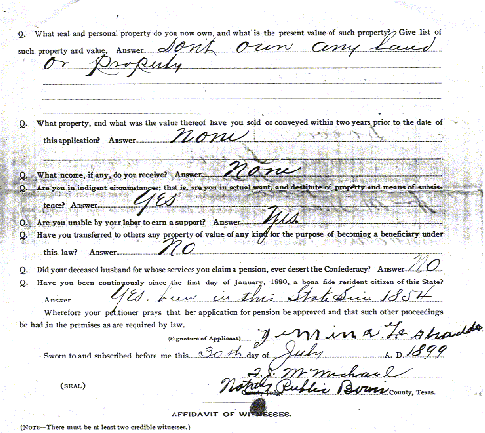 Q. What real and personal property do you now own, and what is the present value of such property? Give list of
such property and value. Answer Dont own any land
or Property
Q. What property, and what was the value thereof have you sold or conveyed within two years prior to the date of
this application? Answer None
Q. What income, if any, do you receive? Answer None
Q. Are you in indigent circumstances; that is, are you in actual want, and destitute of property and means of subsis-
tence? Answer Yes
Q. Are you unable by your labor to earn a support? Answer Yes
Q. Have you transferred to others any property of value of any kind for the purpose of becoming a beneficiary under
this law? Answer No
Q. Did your deceased husband for whose services you claim a pension, ever desert the Confederacy? Answer No
Q. Have you been continuously since the first day of January, 1880, a bona fide resident citizen of this State?
Answer Yes. been in this State Since 1854
Wherefore your petitioner prays that her application for pension be approved and that such other proceedings
be had in the premises as are required by law.
(Signature of Applicant) Jemima
Sworn to and subscribed before me this 30th day of July A. D. 1899
McMichael
(SEAL) Notary Public Bowie County, Texas.
AFFIDAVIT OF WITNESSES.
(NOTE—There must be at least two credible witnesses.)